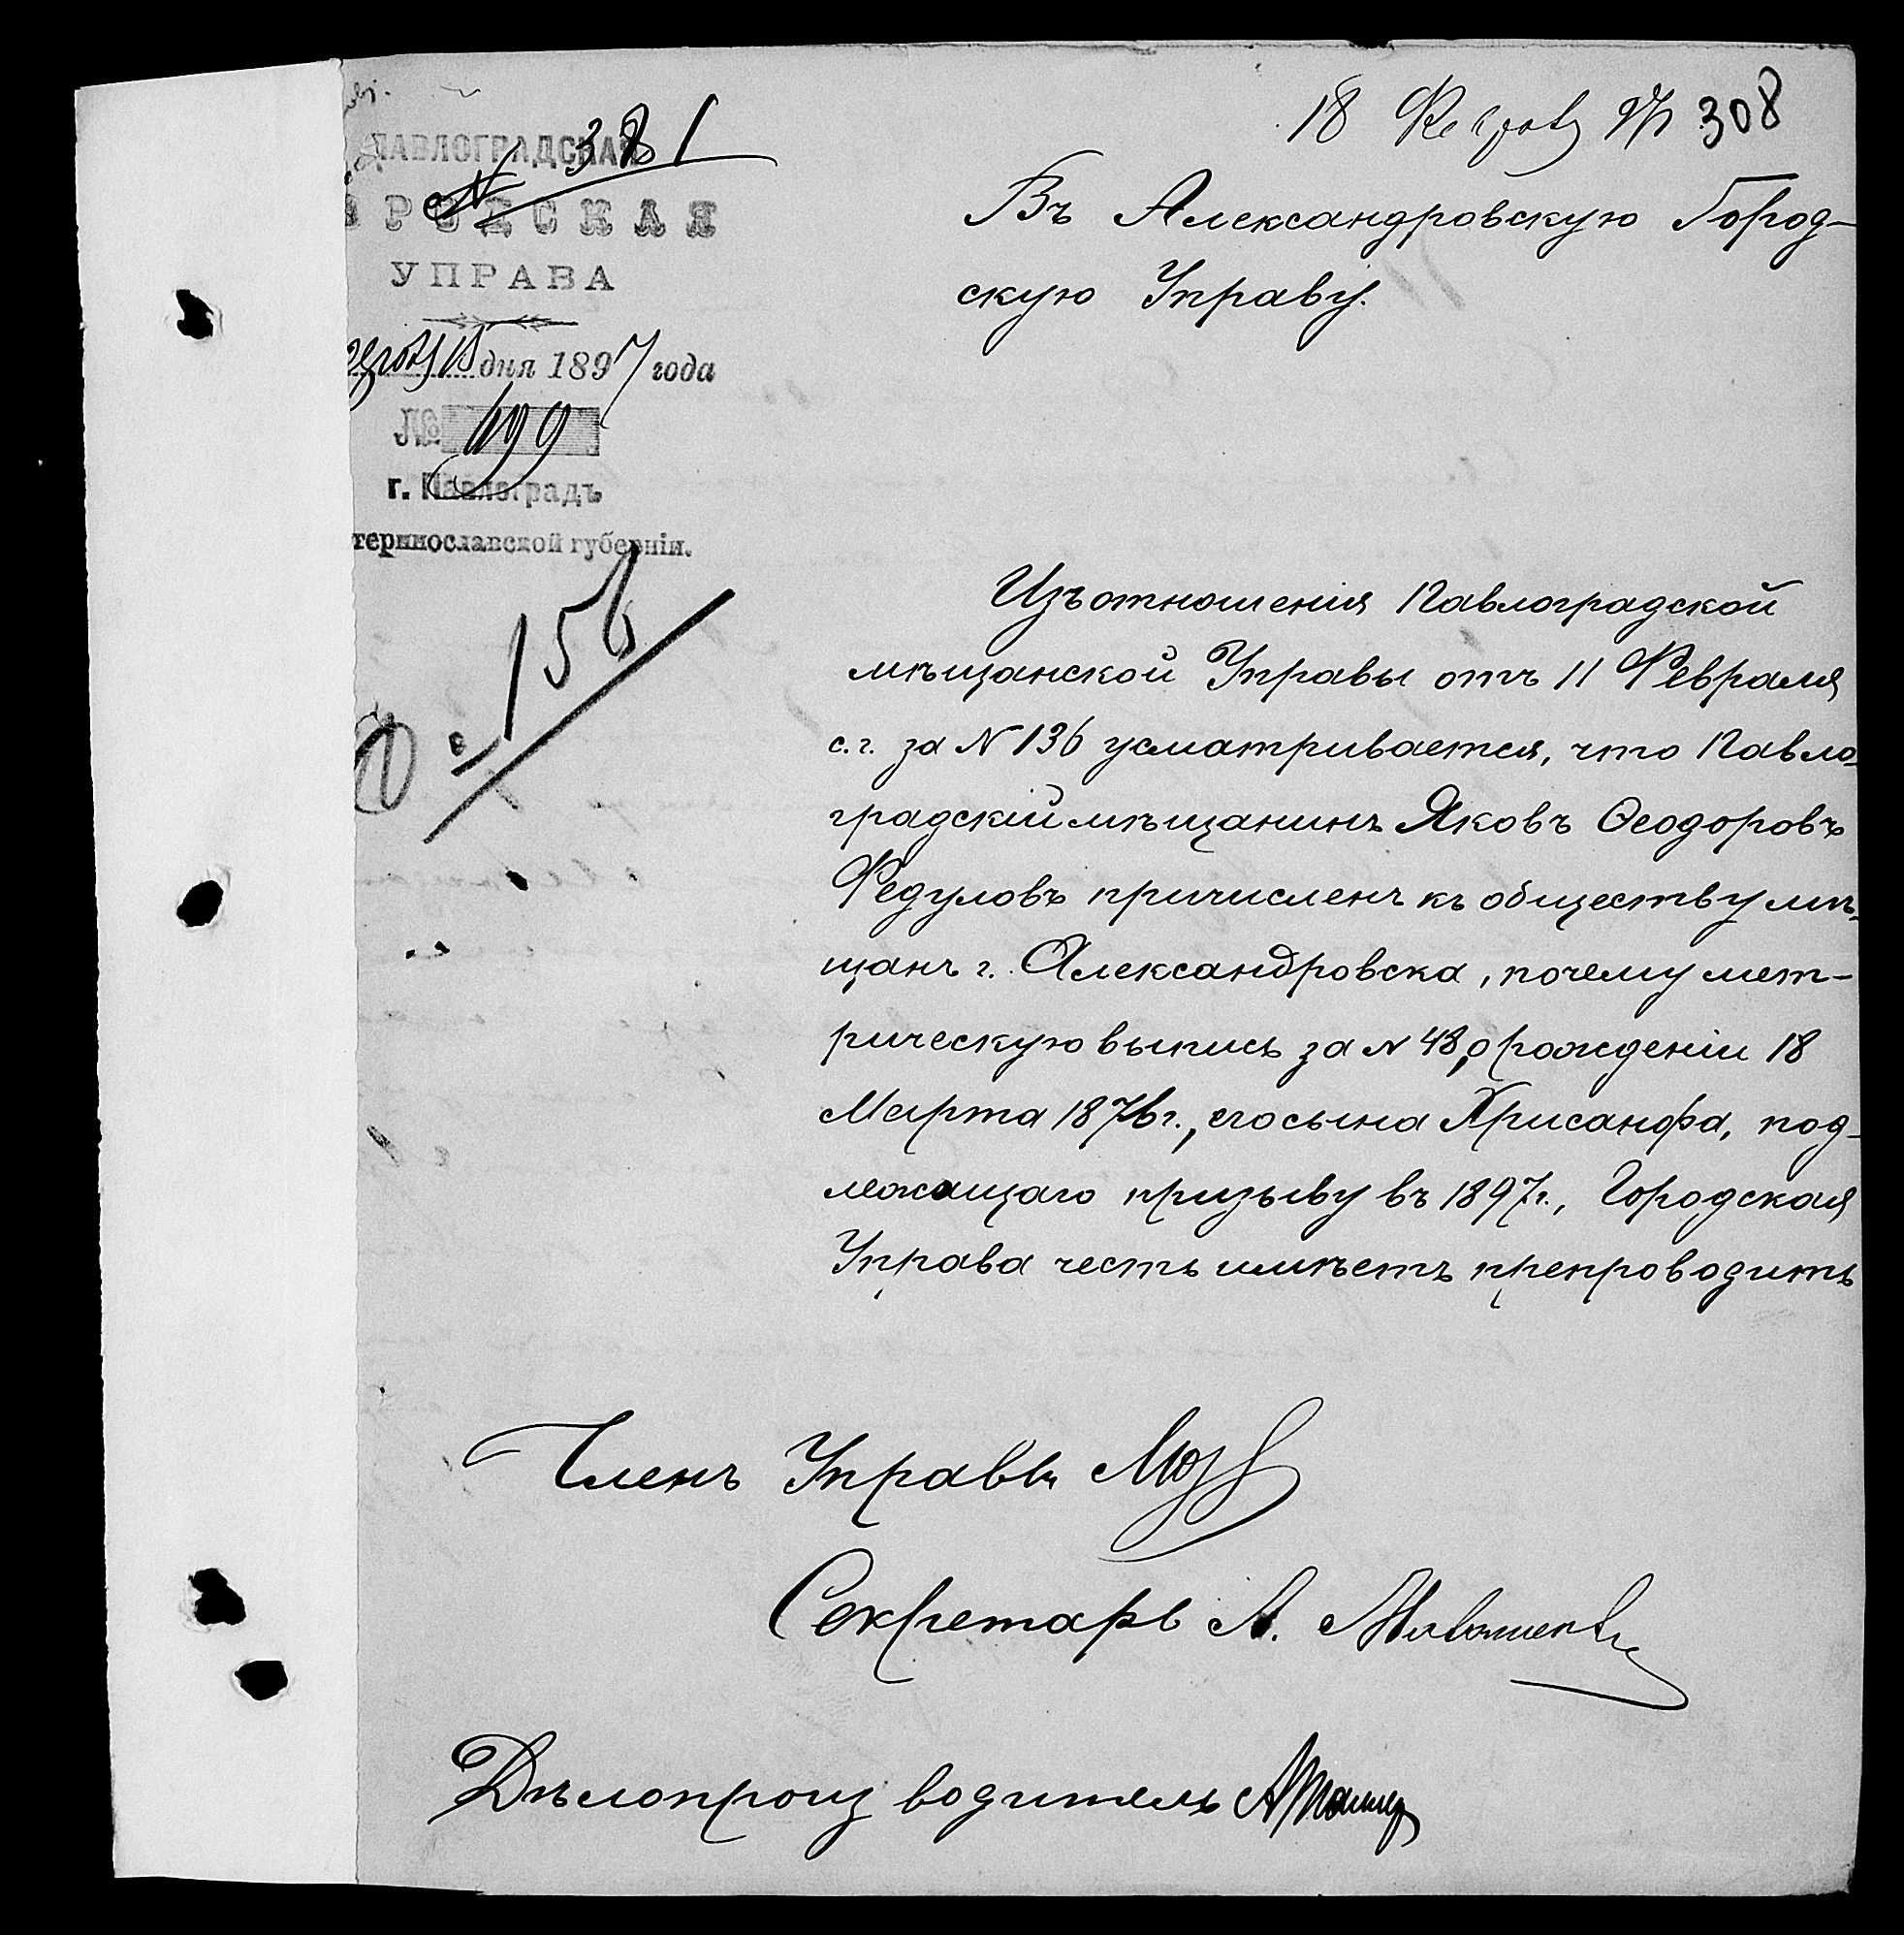 18 Февр. 97 308
№ 381
ПАВЛОГРАДСКАЯ
РОДСКАЯ
УПРАВА
дня 1897 года
№ 499
г. Павлоградъ
теринославской губерніи.
156
Въ Александровскую Город-
скую Управу.
Изъ отношенія Павлоградской
мѣщанской Управы отъ 11 Февраля
с.г. за № 136 усматривается, что Павло-
градскій мѣщанинъ Яковъ Ѳеодоровъ
Федуловъ причисленъ къ обществу мѣ-
щанъ г. Александровска, почему мет-
рическую выпись за № 48, о рожденіи 18
Марта 1876 г., его сына Хрисанфа, под-
лежащаго призыву въ 1897 г., Городская
Управа честь имѣетъ препроводить
Членъ Управы
Секретарь А.
Дѣлопроизводитель